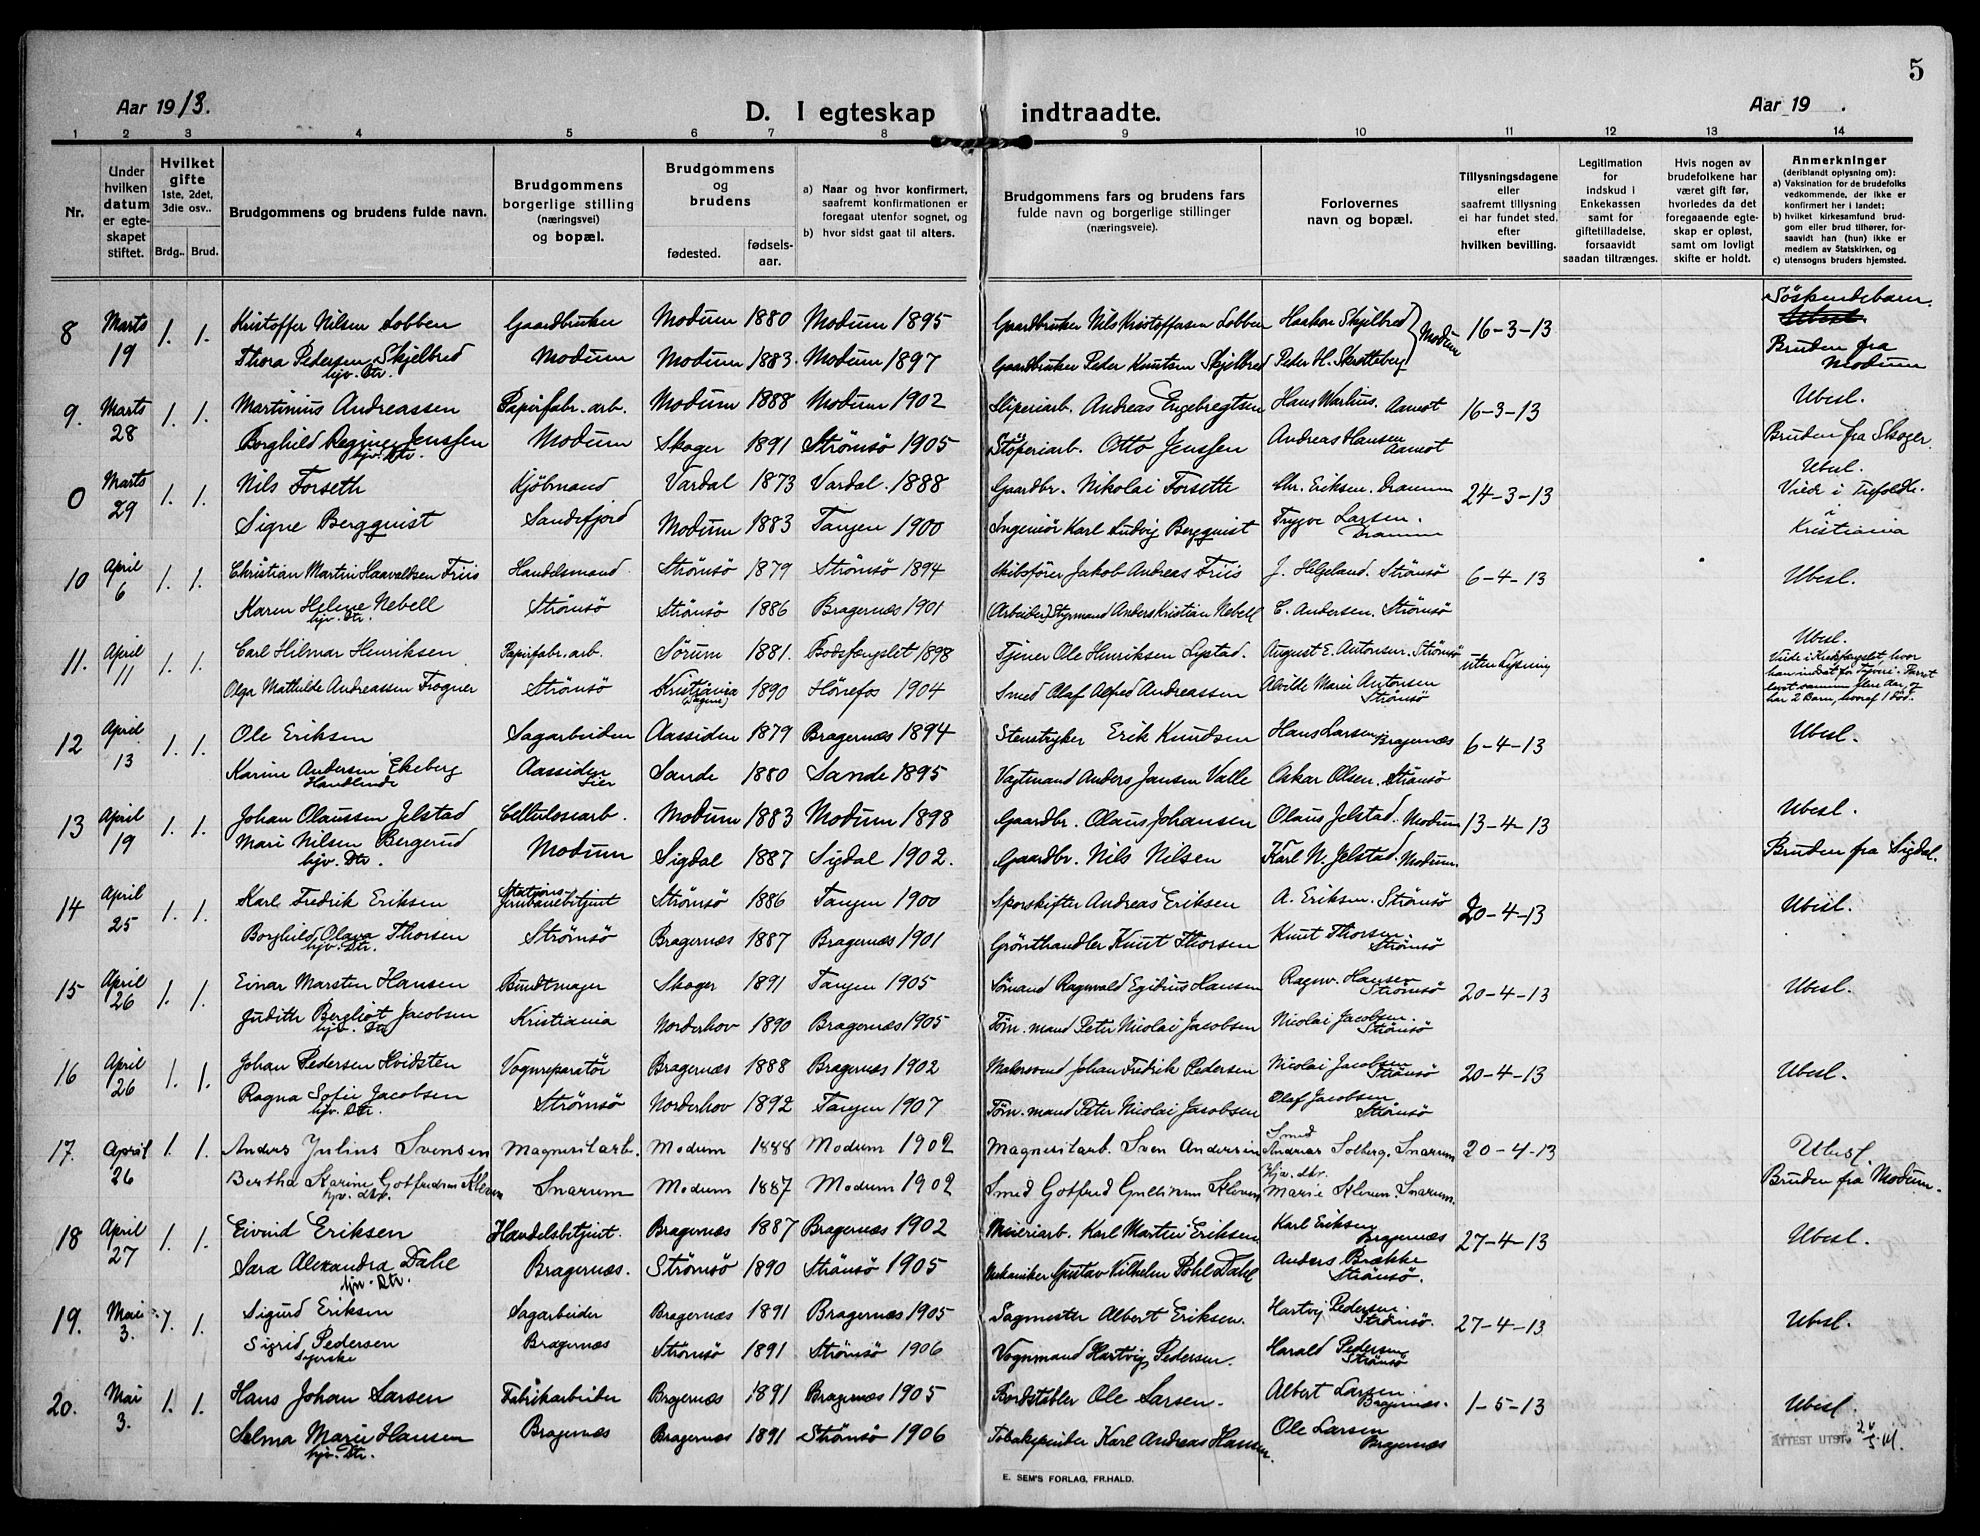 5
Aar 1913.
D. I egteskap indtraadte.
Aar 19 .
1 2 3 4 5 6 7 8 9 10 11 12 13 14
Nr.
Under hvilken datum er egteskapet stiftet.
Hvilket gifte
1ste, 2det, 3die osv..
Brdg.. Brud.
Brudgommens og brudens fulde navn.
Brudgommens borgerlige stilling (næringsvei) og bopæl.
Brudgommens og brudens
fødested.
fødselsaar.
a) Naar og hvor konfirmert, saafremt konfirmationen er foregaat utenfor sognet, og
b) hvor sidst gaat til alters.
Brudgommens fars og brudens fars
fulde navn og borgerlige stillinger
(næringsveie).
Forlovernes
navn og bopæl.
Tillysningsdagene eller saafremt tillysning ei har fundet sted, efter hvilken bevilling.
Legitimation for indskud i Enkekassen samt for giftetilladelse, forsaavidt saadan tiltrænges.
Hvis nogen av brudefolkene har været gift før, hvorledes da det foregaaende egteskap er opløst, samt om lovligt skifte er holdt.
Anmerkninger
(deriblandt oplysning om):
a) Vaksination for de brudefolks vedkommende, der ikke er konfirmert her i landet;
b) hvilket kirkesamfund brudgom eller brud tilhører, forsaavidt han (hun) ikke er medlem av Statskirken, og
c) utensogns bruders hjemsted.
8 Marts 19 1. 1. Kristoffer Nilsen Lobben Gaardbruker Modum 1880 Modum 1895 Gaardbruker Nils Kristoffersen Lobben Haakon Skjelbred 16-3-13 Söskendebarn.
Thora Pedersen Skjelbred hjv. Dtr. Modum Modum 1883 Modum 1897 Gaardbruker Peder Knutsen Skjelbred Peder H. Skretteberg Modum Bruden fra Modum
9. Marts 28 1. 1. Martinius Andreassen Papirfabr. arb. Modum 1888 Modum 1902 Sliperiarb. Andreas Engebregtsen Hans Warhus. Aamot 16-3-13 Ubesl.
Borghild Regine Jenssen hjv. Dtr. Modum Skoger 1891 Strömsö 1905 Stöperiarb. Otto Jenssen Andreas Hansen Aamot Bruden fra Skoger
0 Marts 29 1. 1. Nils Forseth Kjöbmand Vardal 1873 Vardal. 1888 Gaardbr. Nikolai Forseth Chr. Eriksen. Dramm 24-3-13 Ubesl.
Signe Bergquist Sandefjord Modum 1883 Tangen 1900 Ingeniör Karl Ludvig Bergquist Trygve Larsen. Dramm Viede i Trefoldh. i Kristiania
10 April 6 1. 1. Christian Martin Haavaldsen Friis Handelsmand Strömsö 1879 Strömsö 1894 Skibsförer Jakob Andreas Friis J. Helgeland. Strömsö 6-4-13 Ubesl.
Karen Helene Nebell hjv. Dtr. Strömsö Strömsö 1886 Bragernæs 1901 (Arbeider) Styrmand Anders Kristian Nebell C. Andersen. Strömsö
11. April 11 1. 1. Carl Hilmar Henriksen Papirfabr. arb. Sörum 1881. Bodsfængslet 1898 Tjener Ole Henriksen Lystad. August E. Antonsen. Strömsö uten lysning Ubesl.
Olga Mathilde Andreassen Frogner Strömsö Kristiania 1890 Hönefos 1904 Smed Olaf Alfred Andreassen Alvilde Marie Antonsen Strömsö Viede i Kredsfængslet, hvor han indsat for Tyveri. Parret levet sammen flere Aar, og har 2 Barn, hvoraf 1 död.
12 April 13 1. 1. Ole Eriksen Sagarbeider Aassiden 1879 Bragernæs 1894 Stenstryker Erik Knudsen Hans Larsen Bragernæs 6-4-13 Ubesl.
Karine Andersen Ekeberg Handlende Aassiden Lier Sande 1880 Sande 1895 Vagtmand Anders Jansen Valle Oskar Olsen. Strömsö
13 April 19 1. 1. Johan Olaussen Jelstad Cellulosearb. Modum 1883 Modum 1898 Gaardbr. Olaus Johansen Olaus Jelstad. Modum 13-4-13 Ubesl.
Mari Nilsen Bergerud hjv. Dtr. Modum Sigdal 1887 Sigdal 1902. Gaardbr. Nils Nilsen Karl N. Jelstad. Modum. Bruden fra Sigdal.
14 April 25 1. 1. Karl Fredrik Eriksen Stations- Jernbanebetjent Strömsö 1886 Tangen 1900 Sporskifter Andreas Eriksen A. Eriksen. Strömsö 20-4-13 Ubesl.
Borghild Olava Thorsen hjv. Dtr. Strömsö Bragernæs 1887 Bragernæs 1901 Grönthandler Knut Thorsen Knut Thorsen. Strömsö
15 April 26 1. 1. Einar Marsten Hansen Bundtmager Skoger 1891 Tangen 1905 Sömand Ragnvald Egidius Hansen Ragnv. Hansen Strömsö 20-4-13 Ubesl.
Judith Bergliot Jacobsen hjv. Dtr Kristiania Norderhov 1890 Bragernæs 1905 Töm. mand Peter Nicolai Jacobsen Nicolai Jacobsen. Strömsö
16 April 26 1. 1. Johan Pedersen Hvidsten Vognreparatör Bragernæs 1888 Bragernæs 1902 Malersvend Johan Fredrik Pedersen Nicolai Jacobsen Strömsö 20-4-13 Ubesl.
Ragna Sofie Jacobsen hjv. Dtr. Strömsö Norderhov 1892 Tangen 1907 Töm. mand Peter Nicolai Jacobsen Olaf Jacobsen Strömsö
17. April 26 1. 1. Anders Julius Svensen Magnesitarb. Modum 1888 Modum 1902 Magnesitarb. Sven Andersen Smed Andreas Solberg. Snarum 20-4-13 Ubesl.
Bertha Karine Gotfredsen Kleven hjv. dtr. Snarum Modum 1887 Modum 1902 Smed Gotfred Gulliksen Kleven Hjv. dtr. Marie Kleven. Snarum. Bruden fra Modum.
18 April 27 1. 1. Eivind Eriksen Handelsbetjent. Bragernæs 1887 Bragernæs 1902 Meieriarb. Karl Martin Eriksen Karl Eriksen Bragernæs 27-4-13 Ubesl.
Sara Alexandra Dahl hjv. Dtr. Bragernæs. Strömsö 1890 Strömsö 1905 Mekaniker Gustav Vilhelm Pohl Dahl Anders Brække Strömsö.
19. Mai 3. 1. 1. Sigurd Eriksen Sagarbeider Bragernæs 1891 Bragernæs 1905 Sagmester Albert Eriksen. Hartvig Pedersen. Strömsö. 27-4-13 Ubesl.
Sigrid Pedersen Syerske Bragernæs Strömsö 1891 Strömsö 1906 Vognmand Hartvig Pedersen. Harald Pedersen Strömsö
20. Mai 3. 1. 1. Hans Johan Larsen Fabrikarbeider Bragernæs 1891 Bragernæs 1905 Bordstabler Ole Larsen. Albert Larsen. Bragernæs. 1-5-13 Ubesl.
Selma Marie Hansen hjv. Dtr. Bragernæs Bragernæs 1891 Strömsö 1906 Karl Andreas Hansen. Ole Larsen Bragernæs ATTEST UTST.
E. SEM'S FORLAG, FR.HALD.